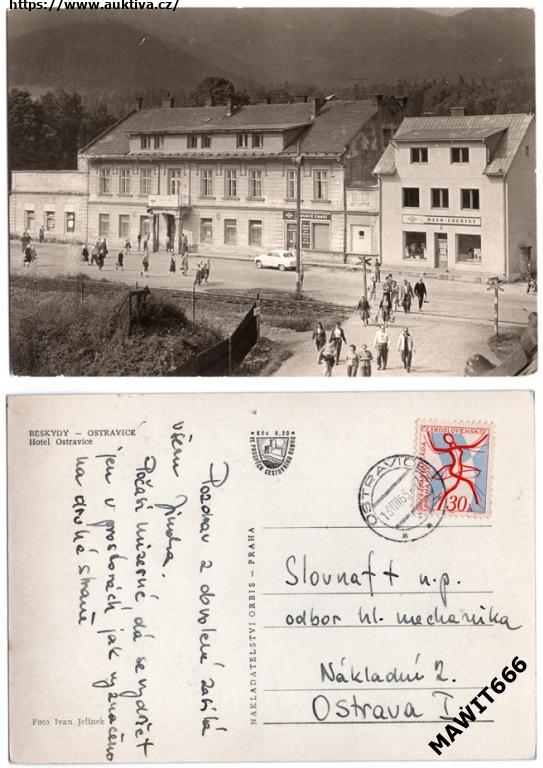 https://www.auktiva.cz/
MASO-UZENINY
BESKYDY – OSTRAVICE
Hotel Ostravice
Kčs 0,20
VE PROSPĚCH CESTOVNÍHO RUCHU
NAKLADATELSTVÍ ORBIS – PRAHA
Foto Ivan Jelínek
Pozdrav z dovolené zasílá
všem Jindra.
Počasí mizerné, dá se vydržet
jen v prostorách, jak vyznačeno
na druhé straně
ČESKOSLOVENSKO
30
OSTRAVICE
Slovnaft n.p.
odbor hl. mechanika
Nákladní 2.
Ostrava I.
MAWIT666